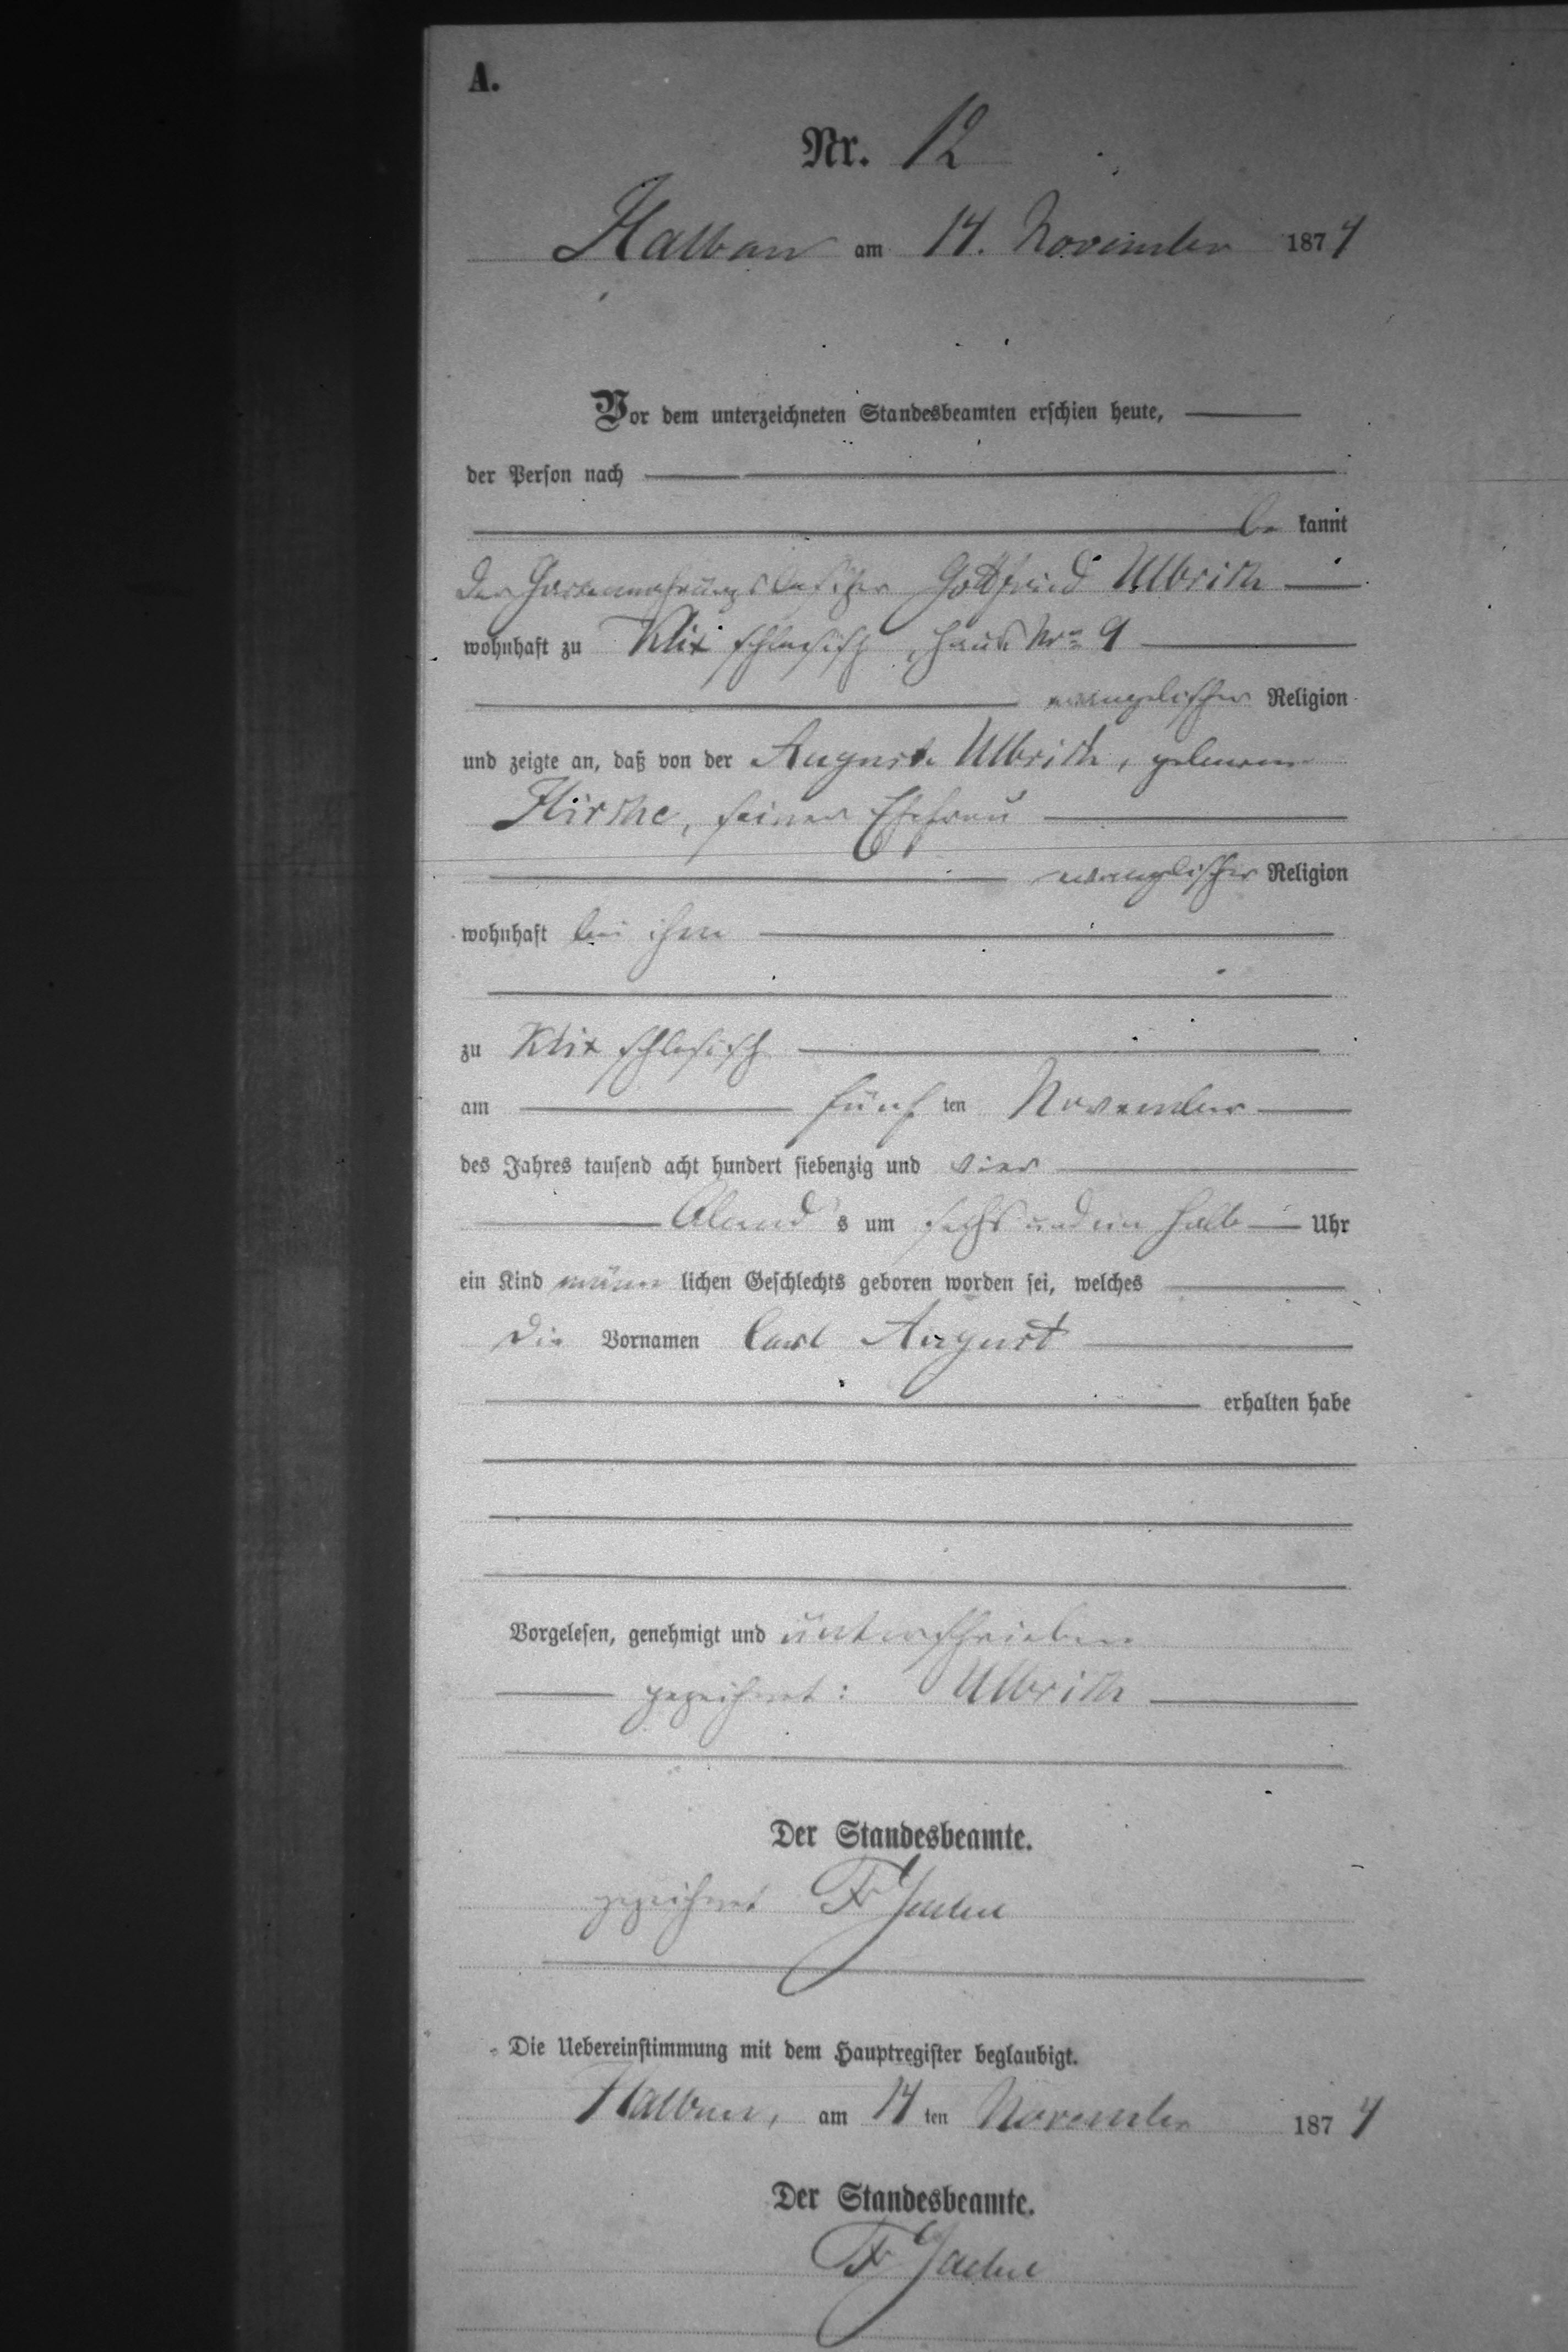 A.
Nr. 12
Halbau am 14. November 1874
Vor dem unterzeichneten Standesbeamten erschien heute,
der Person nach
be kannt
der Gartennahrungsbesitzer Gottfried Ulbrich
wohnhaft zu Klix schlesisch, Haus No 9
evangelischer Religion
und zeigte an, daß von der Auguste Ulbrich, geborene
Hirche, seiner Ehefrau
evangelischer Religion
wohnhaft bei ihm
zu Klix schlesisch
am fünf ten November
des Jahres tausend acht hundert siebenzig und vier
Abend s um sechs und ein halb Uhr
ein Kind männ lichen Geschlechts geboren worden sei, welches
die Vornamen Carl August
erhalten habe
Vorgelesen, genehmigt und unterschrieben
gezeichnet: Ulbrich
Der Standesbeamte.
gezeichnet F
Die Uebereinstimmung mit dem Hauptregister beglaubigt.
Halbau, am 14 ten November 1874
Der Standesbeamte.
F